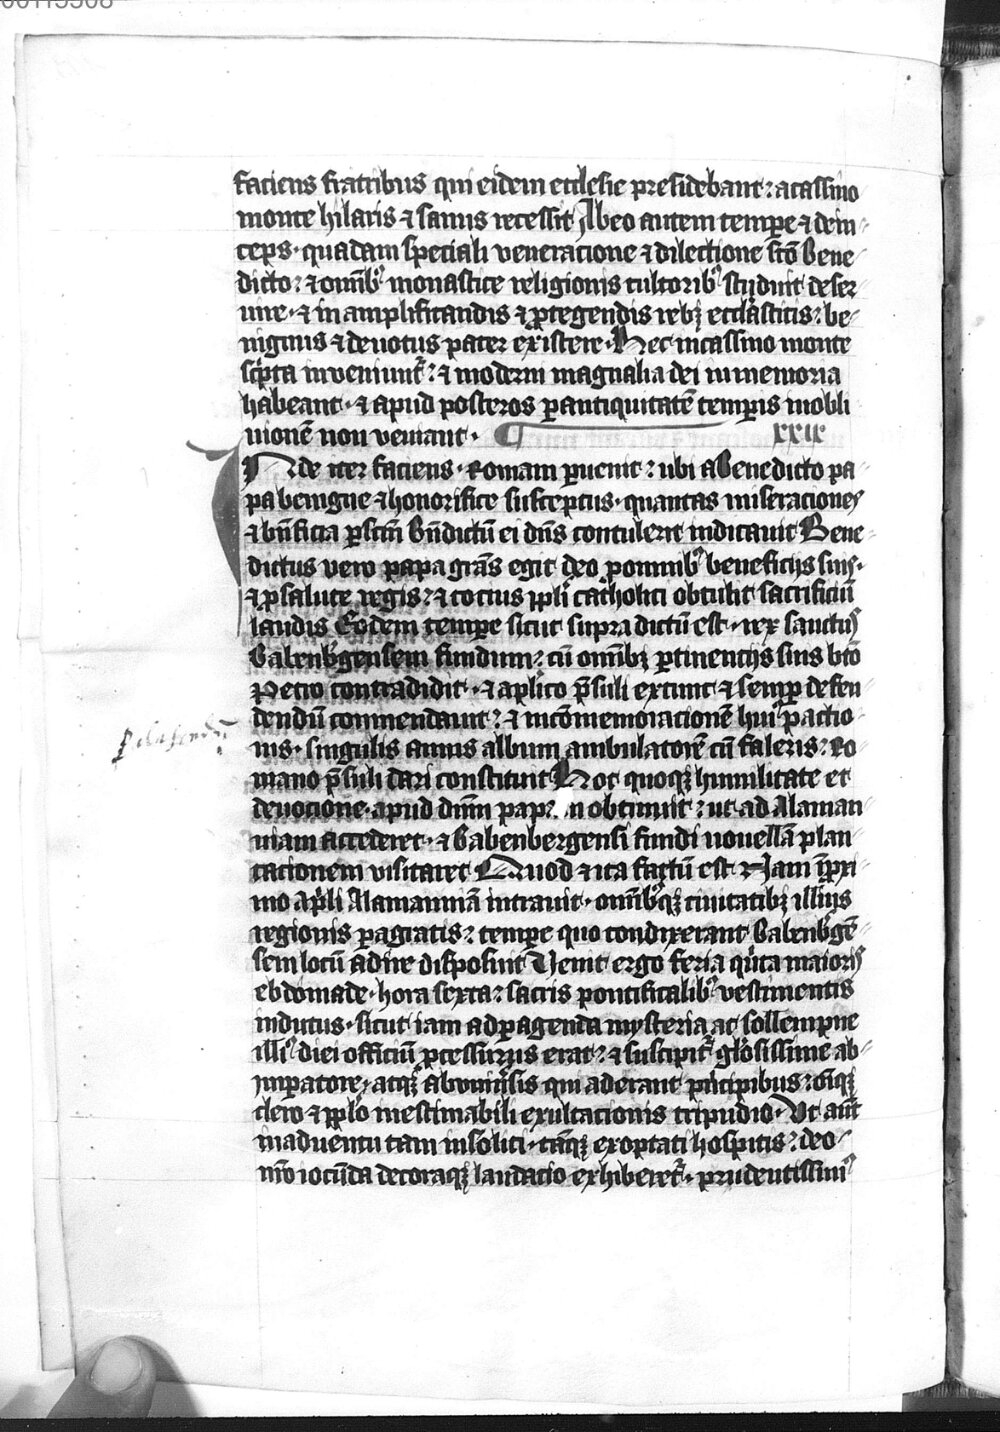 00113308
faciens fratribus qui eidem ecclesie presidebant : a cassino
monte hilaris ⁊ sanus recessit Ab eo autem tempe ⁊ dein-
ceps · quadam speciali veneracione ⁊ dilectione sc̄o Bene-
dicto : ⁊ om̄ibꝰ monastice religionis cultoribꝰ studuit deser-
uire · ⁊ in amplificandis ⁊ ꝓtegendis rebꝫ eccl̓asticis : be-
nignus ⁊ deuotus pater existere · Hec in cassino monte
sc̓pta inveniunt᷑ : ⁊ moderni magnalia dei in memoria
habeant · ⁊ apud posteros ꝑ antiquitatē temꝑis in obli
uionē non veniant ·
xxix
Inde iter faciens · Romam ꝑuenit : ubi a Benedicto pa-
pa benigne ⁊ honorifice susceptus · quantas miseraciones
⁊ bn̄ficia ꝑ sc̄m Bn̄dictū ei dn̄s contulerit indicauit Bene-
dictus vero papa gr̄as egit deo ꝓ omnibꝰ beneficijs suis ·
⁊ ꝓ salute regis : ⁊ tocius ppl̓i catholici obtulit sacrificiū
laudis Eodem tempe sicut supra dictū est · rex sanctus
Babenb̓gensem fundum : cū om̄ibꝫ ꝑtinencijs suis bt̄o
Petro contradidit · ⁊ apl̓ico p̄suli extunc ⁊ semꝑ defen-
dendū commendauit : ⁊ in cōmemoracionē huiꝰ pactio-
nis · singulis annis album ambulatorē cū faleris : Ro-
mano p̄suli dari constituit Hoc quoqꝫ humilitate et
deuocione · apud dn̄m pap̄ obtinuit : ut ad Alaman-
niam accederet · ⁊ Babenbergensi fundi nouellā plan-
tacionem visitaret Quod ⁊ ita factū est Nam ī ꝓxi-
mo apl̓i Alamanniā intrauit · om̄ibꝰqꝫ ciuitatibꝫ illius
regionis ꝑagratis : tempe quo condixerant Babenb̓gē-
sem locū adire disposuit Venit ergo feria q̓nta maioris
ebdomade · hora sexta : sacris pontificalibꝰ vestimentis
indutus · sicut iam ad ꝑagenda mysteria ac sollempne
illiꝰ diei officiū ꝓcessurus erat : ⁊ suscipit᷑ gl̓osissime ab
impatore · atqꝫ ab vniu̓sis qui aderant p̓ncipibus : om̄iqꝫ
clero ⁊ ppl̓o inestimabili exultacionis tripudio · Vt aut̄
in aduentu tam insoliti · tāqꝫ exoptati hospitis : deo
nr̄o iocūda decoraqꝫ laudacio exhiberet᷑ · prudentissimꝰ